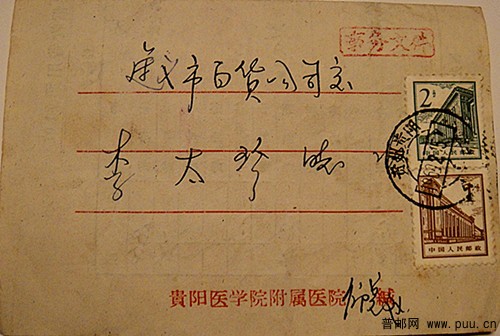 事务文件
遵义市百货公司交
李太珍
2分
中国人民邮政
貴阳医学院附属医院 緘
普邮网 www.puu.cn